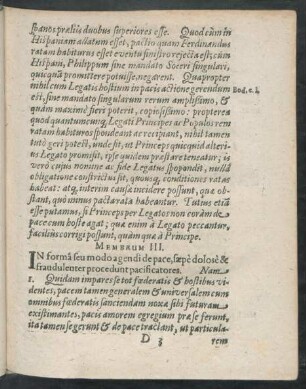 spanos præstiis duobus superiores esse. Quod cùm in
Hispaniam allatum esset, pactio quam Ferdinandus
ratam habiturus esset eventu sinistro rejecta est; cùm
Hispani, Philippum sine mandato Soceri singulari,
quicquā promittere potuisse, negarent. Quapropter
nihil cum Legatis hostium in pacis actione gerendum
erit, sine mandato singularum rerum amplissimo, &
quàm maximè fieri poterit, copiosissimo: propterea
quod quantumcunq; Legati Principes ac Populi rem
ratam habituros spondeant ac recipiant, nihil tamen
tutò geri potest, unde fit, ut Princeps quicquid alteri
Legato promisit, ipse quidem præstare teneatur; is
verò cujus nomine ac fide Legatus spopondit, nulla
obligatione constrictus sit, quousq; conditiones ratas
habeat: atq; interim causæ incidere possunt, quæ ob-
stant, quò minus pacta rata habeantur. Tutius etiā
esse putamus, si Princeps per Legatos non coràm de
pace cum hoste agat; quæ enim à Legato peccantur,
faciliùs corrigi possunt, quàm quæ à Principe.
Bod. c. l.
MEMBRUM III.
IN formâ seu modo agendi de pace, sæpè dolosè &
fraudulenter procedunt pacificatores. Nam
1. Quidam impares se tot fœderatis & hostibus vi-
dentes, pacem tamen generalem & universalem cum
omnibus fœderatis sanciendam noxæ sibi futuram
existimantes, pacis amorem egregium præ se ferunt,
ita tamen se gerunt & de pace tractant, ut particula-
D 3 rem